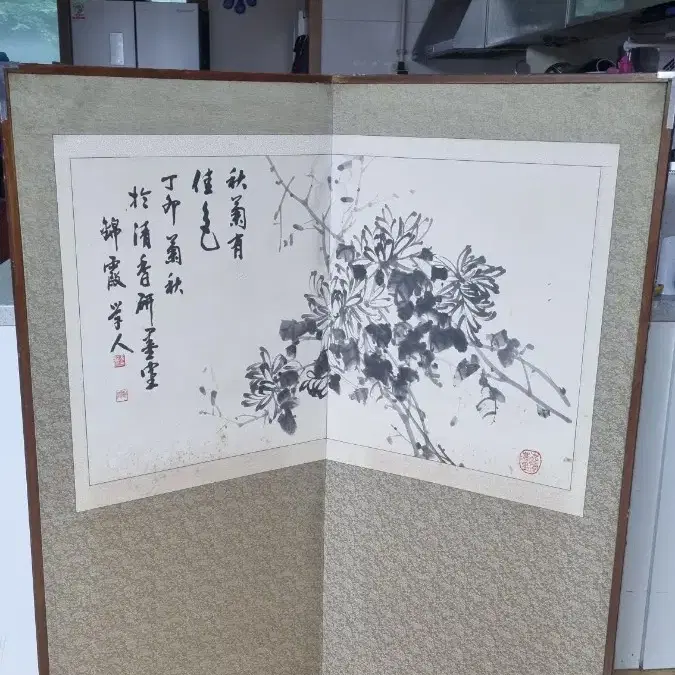 秋菊有
佳色
丁卯菊秋
於清香研墨室
錦霞學人